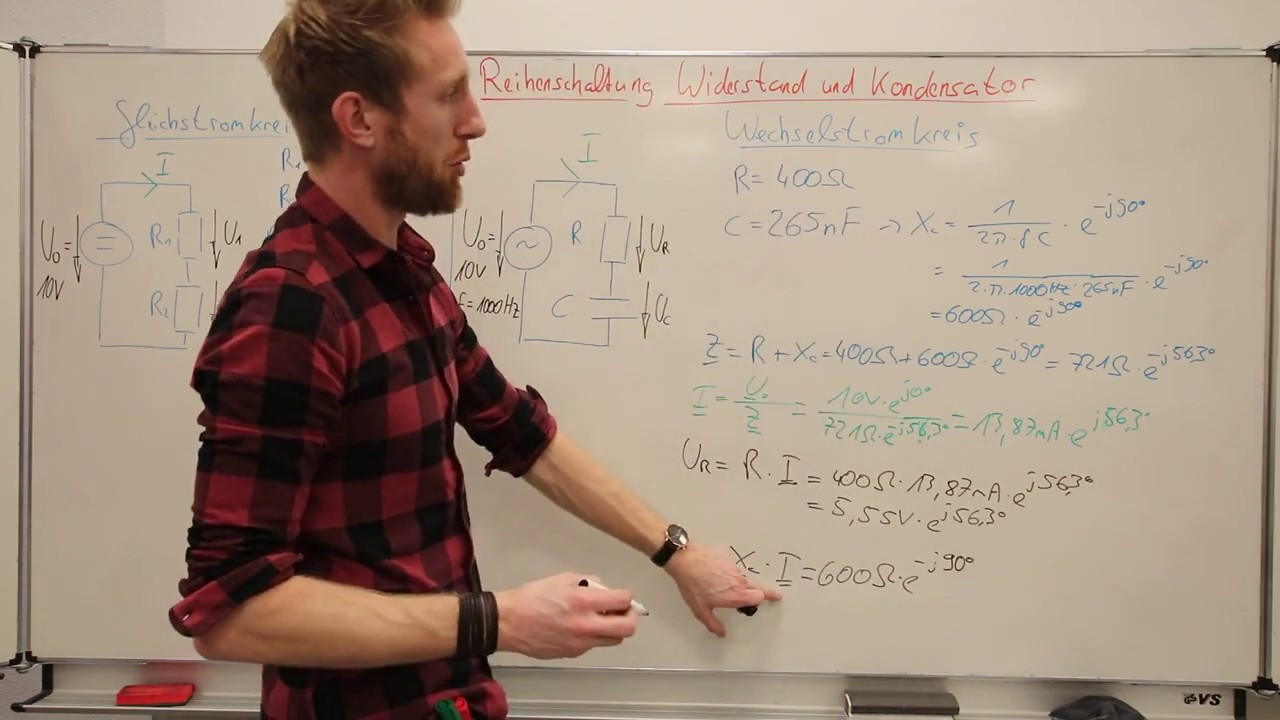 Reihenschaltung Widerstand und Kondensator
Gleichstromkrei
I
U₀=
10V
R₁
U₁
R₂
R₁
R
I
U₀=
10V
f=1000Hz
~
R
U_R
C
U_C
Wechselstromkreis
R= 400Ω
C=265nF → X_C= 1/(2π·f·C) · e^-j90°
= 1/(2·π·1000Hz·265nF) · e^-j90°
=600Ω·e^-j90°
Z=R+X_C=400Ω+600Ω·e^-j90°=721Ω·e^-j56,3°
I=U₀/Z=10V·e^j0°/721Ω·e^-j56,3°=13,87mA·e^j56,3°
U_R=R·I=400Ω·13,87mA·e^j56,3°
=5,55V·e^j56,3°
X_C·I=600Ω·e^-j90°
VS